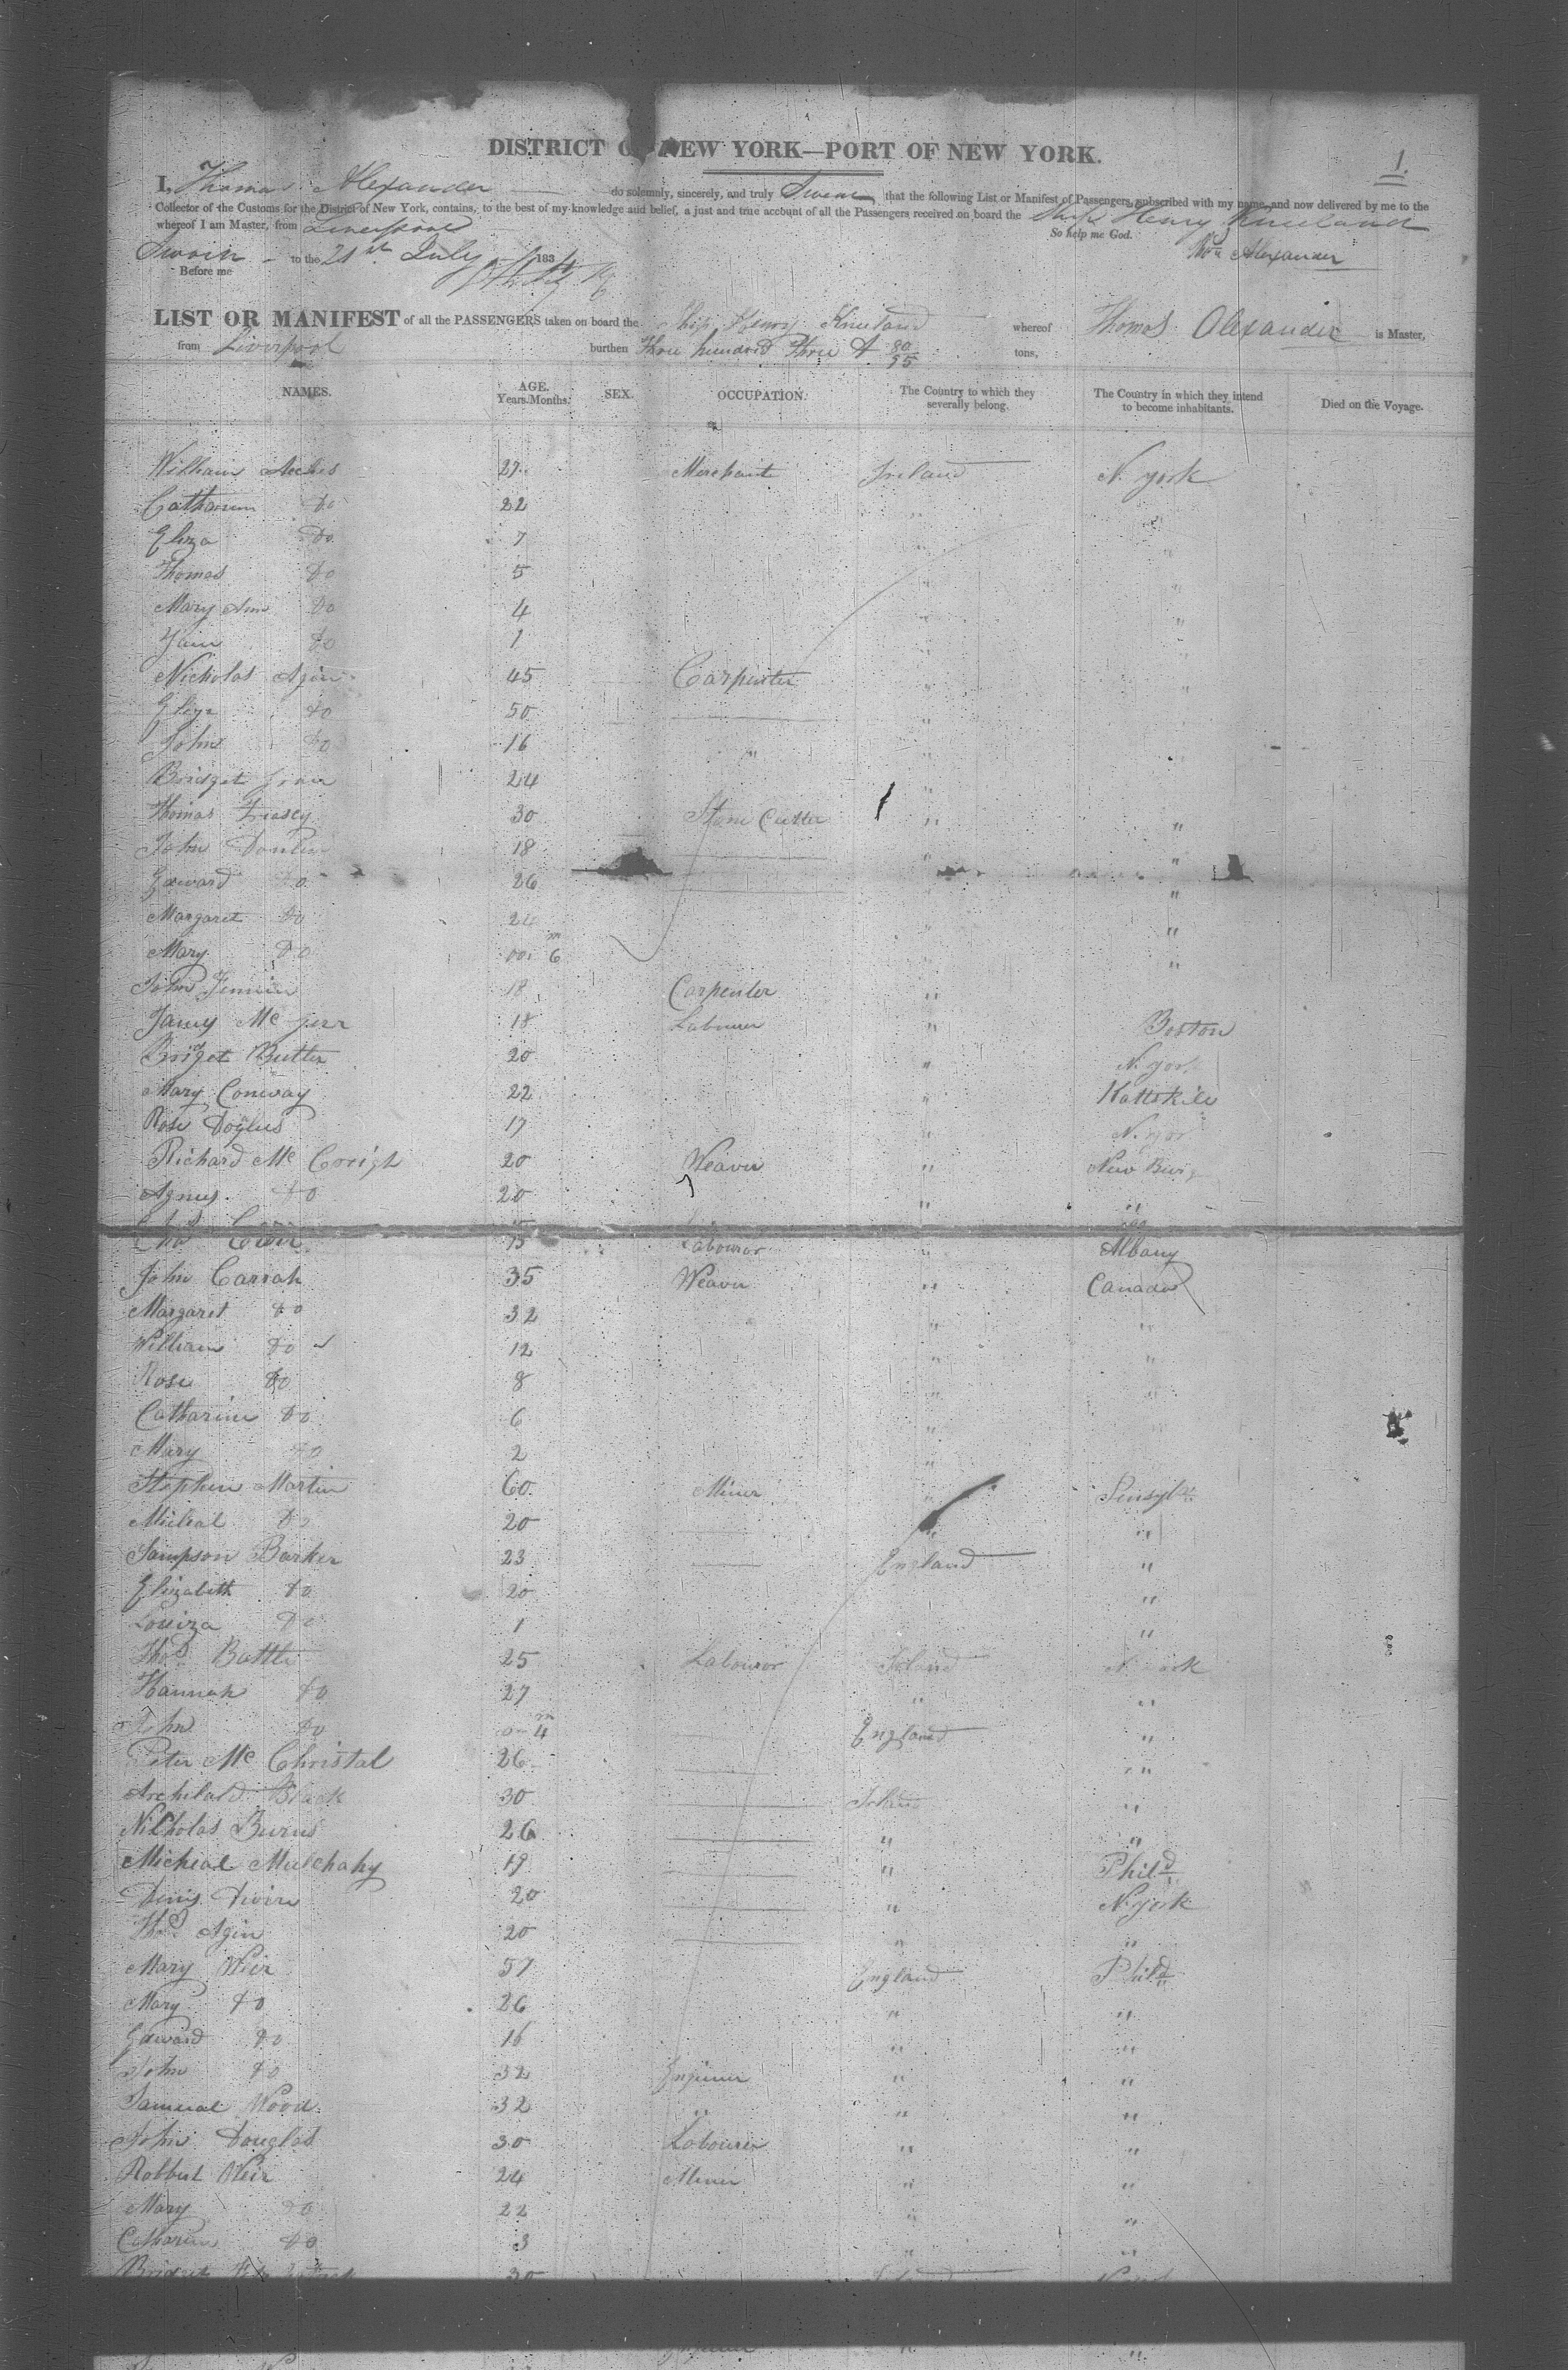 DISTRICT OF NEW YORK—PORT OF NEW YORK.
1.
I, Thomas Alexander do solemnly, sincerely, and truly Swear that the following List or Manifest of Passengers, subscribed with my name, and now delivered by me to the
Collector of the Customs for the District of New York, contains, to the best of my knowledge and belief, a just and true account of all the Passengers received on board the Ship Henry Kneeland
whereof I am Master, from Liverpool So help me God.
Sworn to the 21st July 183
Before me Alexander
LIST OR MANIFEST of all the PASSENGERS taken on board the Ship Henry Kneeland whereof Thomas Alexander is Master,
from Liverpool burthen Three hundred Three & 80/95 tons,
NAMES. AGE. Years. Months. SEX. OCCUPATION. The Country to which they severally belong. The Country in which they intend to become inhabitants. Died on the Voyage.
William 27 Merchant Ireland N. york
Catharine Do 22 " "
Eliza Do 7 " "
Thomas Do 5 " "
Mary Ann Do 4 " "
Jain Do 1 " "
Nicholas Agin 45 Carpenter " "
Do 50 "
John Do 16 " "
Bridget 24 "
Thomas 30 Stone Cutter " "
John 18 " "
Edward Do 26 " "
Margaret Do " "
Mary Do 00. m 6 " "
John 18 Carpenter "
James Mc 18 Labourer " Boston
Bridget Butler 20 " N. york
Mary Conway 22 " Kattskile
Rose 17 " N. yor
Richard Mc 20 Weaver " New Burg
Agnes Do 20 " "
Labourer " Albany
John Carrah 35 Weaver " Canada
Margaret Do 32 " "
William Do 12 " "
Rose Do 8 " "
Catharine Do 6 "
Mary Do 2 "
Stephen Martin 60 Miner "
Micheal Do 20 " "
Sampson Barker 23 England "
Elizabeth Do 20 "
Louiza Do 1 "
Thos Battle 25 Labouror Ireland N. york
Hannah Do 27 " "
John Do m 4 England "
Peter Mc Christal 26 "
Archibald Black 30 Ireland "
Nicholas Burns 26 " "
Micheal Mulchahy 19 " Phild
Denis 20 " N. york
Thos Agin 20 " "
Mary Weir 57 England Phild
Mary Do 26 " "
Edward Do 16 " "
John Do 32 Engineer " "
Samueal Wood 32 " " "
John Douglas 30 Labourer " "
Robbert Weir 24 Miner " "
Mary Do 22 " "
Catharine Do 3 " "
Bridget 30